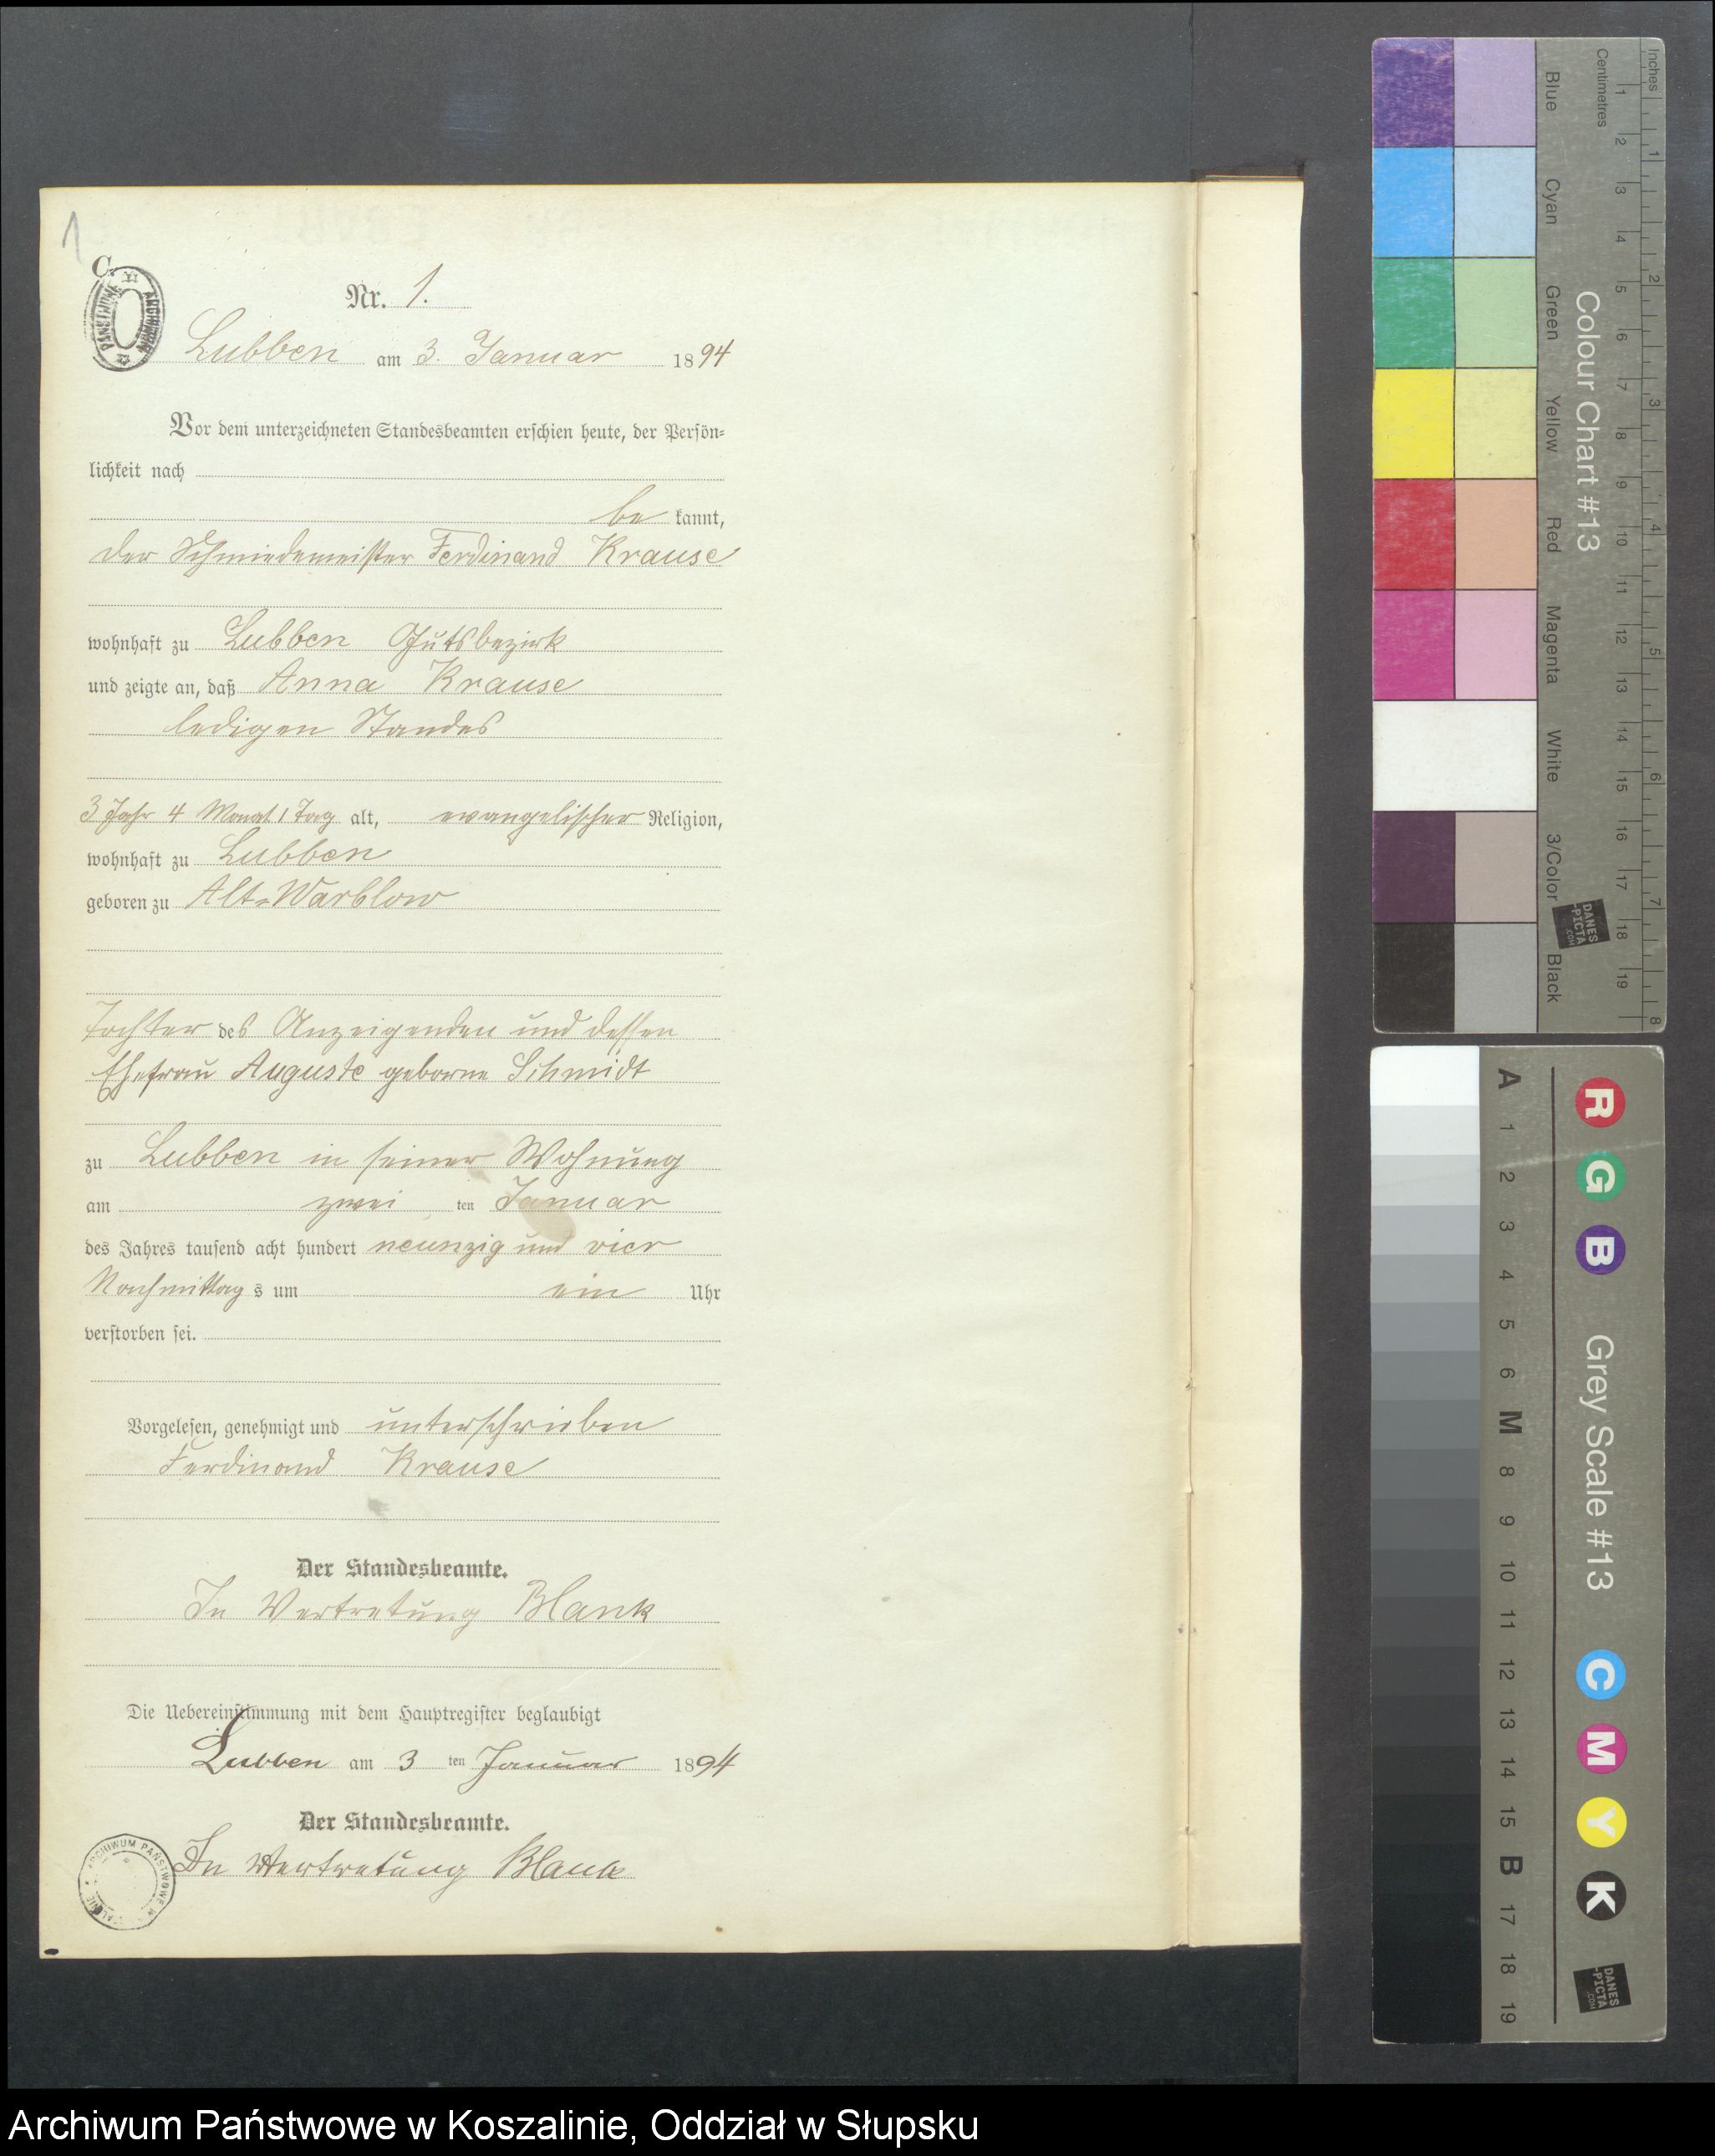 1
C.
PAŃSTWOWE ARCHIWUM
Nr. 1.
Lubben am 3. Januar 1894
Vor dem unterzeichneten Standesbeamten erschien heute, der Persön-
lichkeit nach
be kannt,
der Schmiedemeister Ferdinand Krause
wohnhaft zu Lubben Gutsbezirk
und zeigte an, daß Anna Krause
ledigen Standes
3 Jahr 4 Monat 1 Tag alt, evangelischer Religion,
wohnhaft zu Lubben
geboren zu Alt-Warblow
Tochter des Anzeigenden und dessen
Ehefrau Auguste geborne Schmidt
zu Lubben in seiner Wohnung
am zwei ten Januar
des Jahres tausend acht hundert neunzig und vier
Nachmittag s um ein Uhr
verstorben sei.
Vorgelesen, genehmigt und unterschrieben
Ferdinand Krause
Der Standesbeamte.
In Vertretung Blank
Die Uebereinstimmung mit dem Hauptregister beglaubigt
Lubben am 3 ten Januar 1894
Der Standesbeamte.
In Vertretung Blank
ARCHIWUM PAŃSTWOWE W
Inches 1 2 3 4 5 6 7 8
Centimetres 1 2 3 4 5 6 7 8 9 10 11 12 13 14 15 16 17 18 19
Colour Chart #13
Blue Cyan Green Yellow Red Magenta White 3/Color Black
DANES
-PICTA
.COM
A 1 2 3 4 5 6 M 8 9 10 11 12 13 14 15 B 17 18 19
R G B Grey Scale #13 C M Y K
DANES
-PICTA
.COM
Archiwum Państwowe w Koszalinie, Oddział w Słupsku